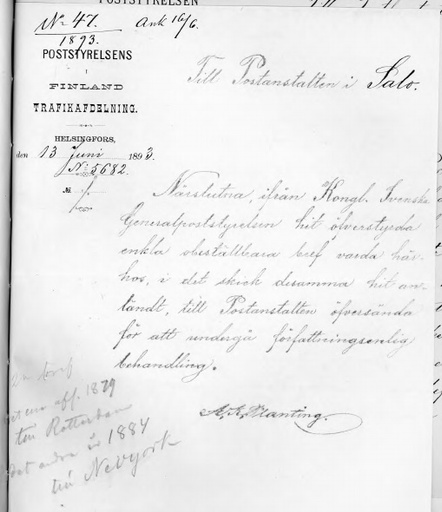 POSTSTYRELSEN
No 47. Ank 16/6.
1893.
POSTSTYRELSENS
i
FINLAND
TRAFIKAFDELNING.
HELSINGFORS,
den 13 Juni 1893.
No 5682.
№ 1
Till Postanstalten i Salo.
Närslutna, ifrån Kongl. Svenska
Generalpoststyrelsen hit öfverstyrda
enkla obeställbara bref varda här-
hos, i det skick desamma hit an-
ländt, till Postanstalten öfversända
för att undergå författningsenlig
behandling.
bref
1879
Rotterdam
det andra 1884
till Nevyork